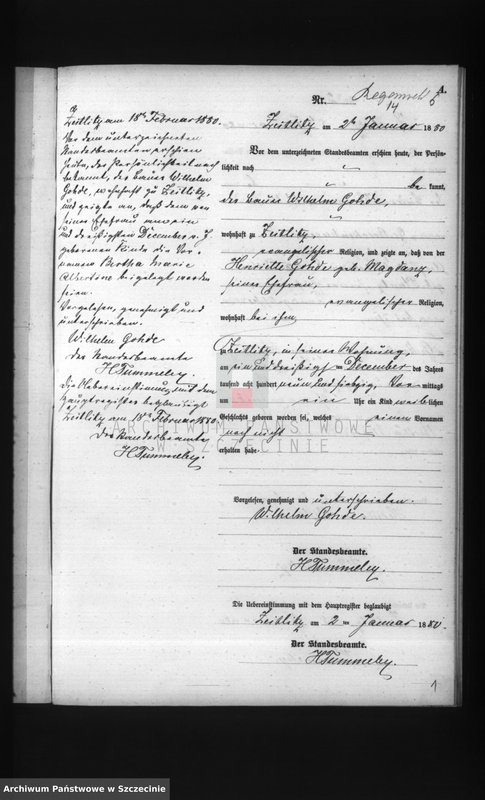 A.
Nr. 1
Zeitlitz am 2ten Januar 1880
Vor dem unterzeichneten Standesbeamten erschien heute, der Persön-
lichkeit nach
be kannt,
der Bauer Wilhelm Gohde,
wohnhaft zu Zeitlitz,
evangelischer Religion, und zeigte an, daß von der
Henriette Gohde geb. Magdanz,
seiner Ehefrau,
evangelischer Religion,
wohnhaft bei ihm,
zu Zeitlitz, in seiner Wohnung,
am ein und dreißigsten December des Jahres
tausend acht hundert neun und siebzig, Vor mittags
um ein Uhr ein Kind weiblichen
Geschlechts geboren worden sei, welches einen Vornamen
noch nicht
erhalten habe.
Vorgelesen, genehmigt und unterschrieben.
Wilhelm Gohde.
Der Standesbeamte.
H Tummeley.
Die Uebereinstimmung mit dem Hauptregister beglaubigt
Zeitlitz am 2ten Januar 1880.
Der Standesbeamte.
H Tummeley.
Zeitlitz am 18ten Februar 1880.
Vor dem unterzeichneten
Standesbeamten erschien
heute, der Persönlichkeit nach
bekannt, der Bauer Wilhelm
Gohde, wohnhaft zu Zeitlitz,
und zeigte an, daß dem von
seiner Ehefrau am ein
und dreißigsten December v. J.
geborenen Kinde die Vor-
namen Bertha Marie
Albertine beigelegt worden
seien.
Vorgelesen, genehmigt und
unterschrieben.
Wilhelm Gohde
Der Standesbeamte
H Tummeley.
Die Uebereinstimmung mit dem
Hauptregister beglaubigt
Zeitlitz am 18ten Februar 1880
Der Standesbeamte
H Tummeley.
ARCHIWUM PAŃSTWOWE
W SZCZECINIE
1
Archiwum Państwowe w Szczecinie